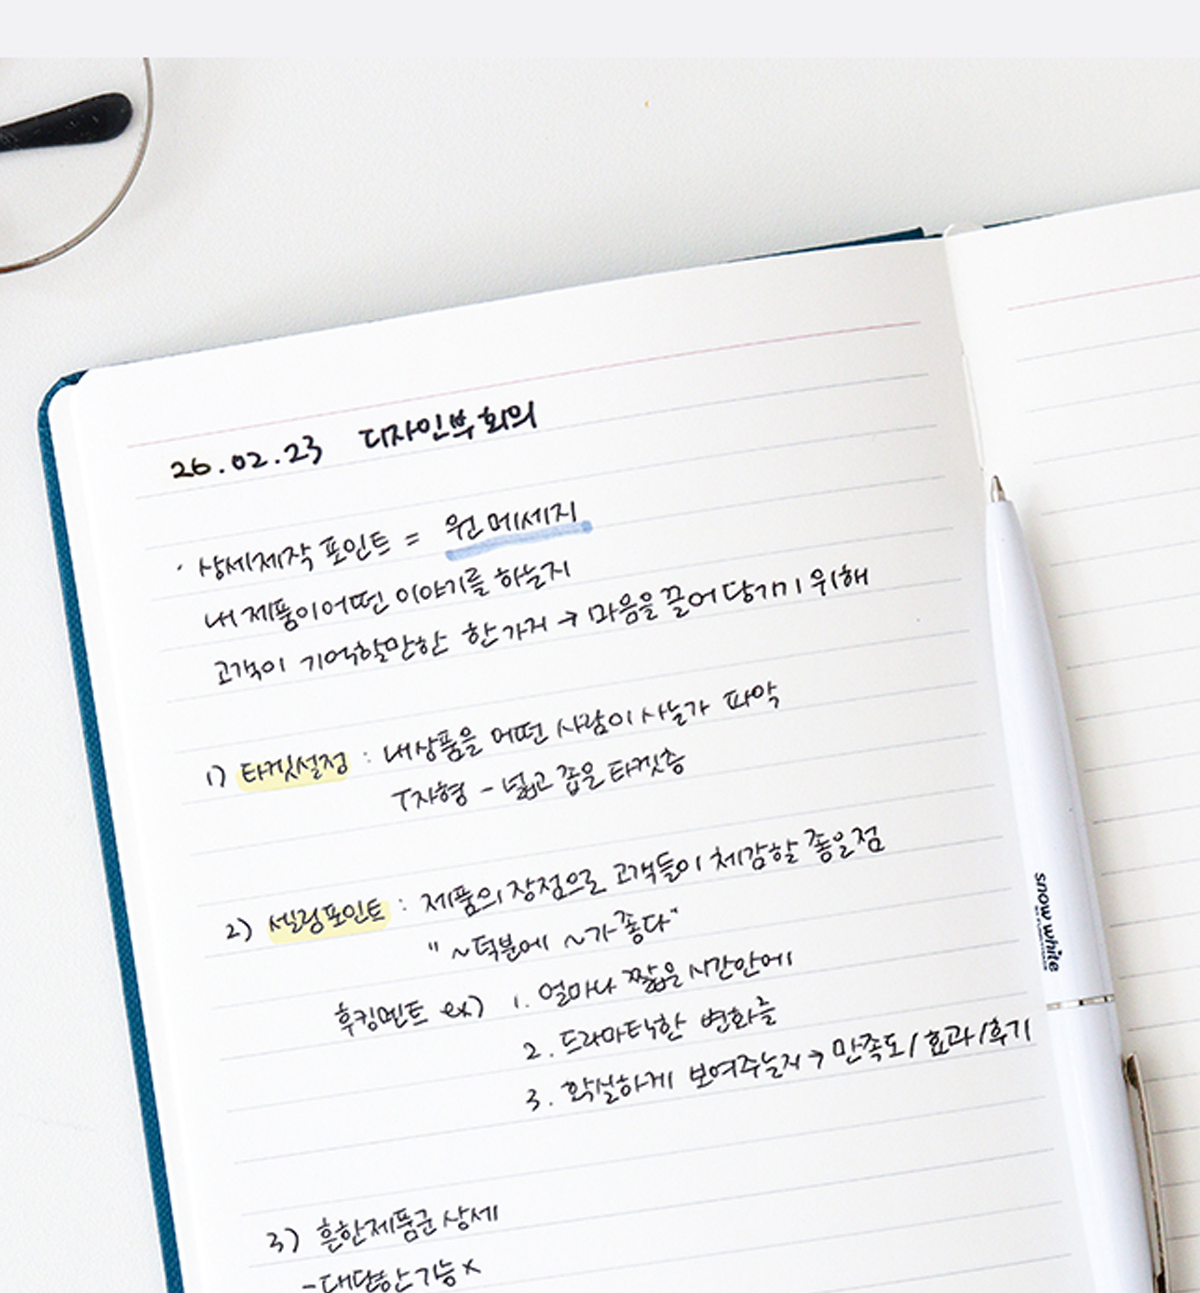 26.02.23 디자인부 회의
· 상세제작 포인트 = 원 메세지
내 제품이 어떤 이야기를 하는지
고객이 기억할만한 한가지 → 마음을 끌어 당기기 위해
1) 타킷설정 : 내상품을 어떤 사람이 사는가 파악
T자형 - 넓고 좁은 타킷층
2) 셀링포인트 : 제품의 장점으로 고객들이 체감할 좋은점
" ~덕분에 ~가 좋다"
후킹멘트 ex) 1. 얼마나 짧은 시간안에
2. 드라마틱한 변화를
3. 확실하게 보여주는지 → 만족도/효과/후기
3) 흔한제품군 상세
- 대단한 기능 x
snow white